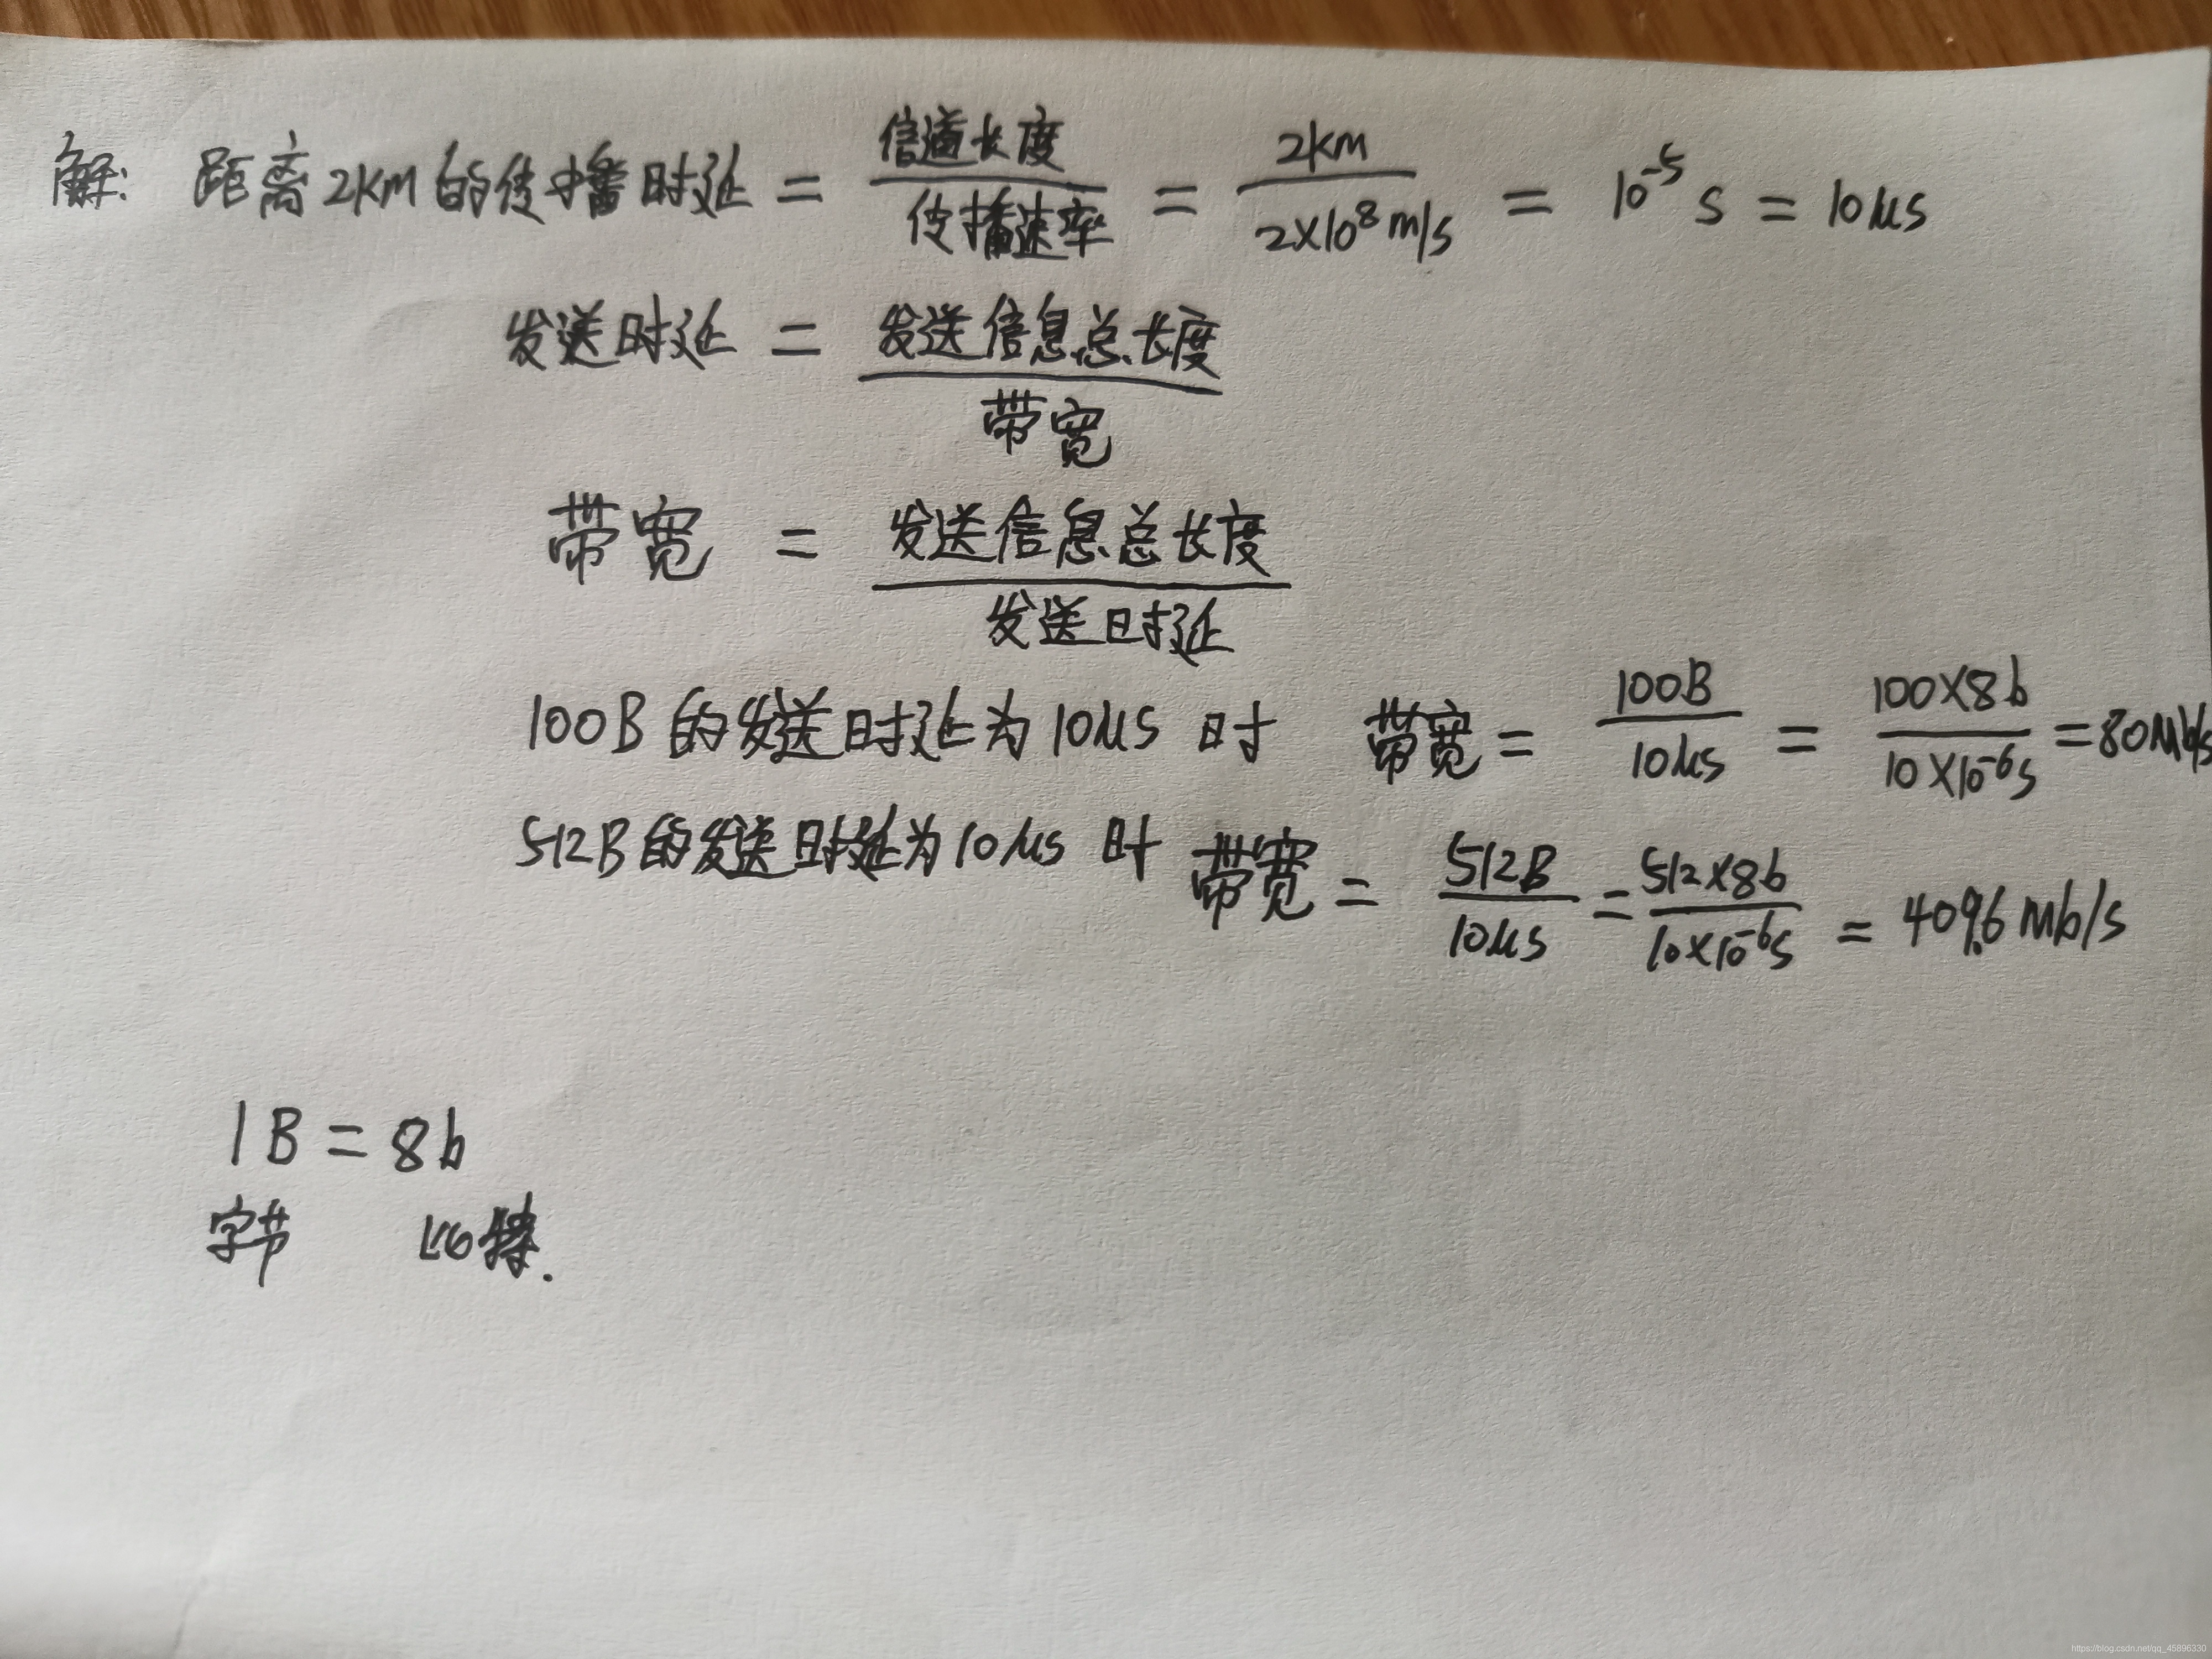 解: 距离2km的传播时延 = 信道长度/传播速率 = 2km/2×10⁸m/s = 10⁻⁵ s = 10μs
发送时延 = 发送信息总长度/带宽
带宽 = 发送信息总长度/发送时延
100B的发送时延为10μs 时 带宽 = 100B/10μs = 100×8b/10×10⁻⁶s = 80Mb/s
512B的发送时延为10μs 时 带宽 = 512B/10μs = 512×8b/10×10⁻⁶s = 409.6 Mb/s
1B = 8b
字节 比特.
https://blog.csdn.net/qq_45896330